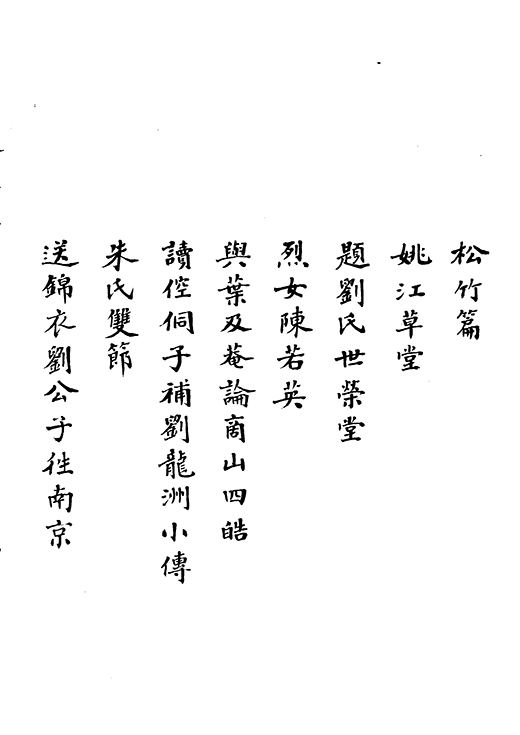 松竹篇
姚江草堂
題劉氏世榮堂
烈女陳若英
與葉及菴論商山四皓
讀倥侗子補劉龍洲小傳
朱氏雙節
送錦衣劉公子徃南京